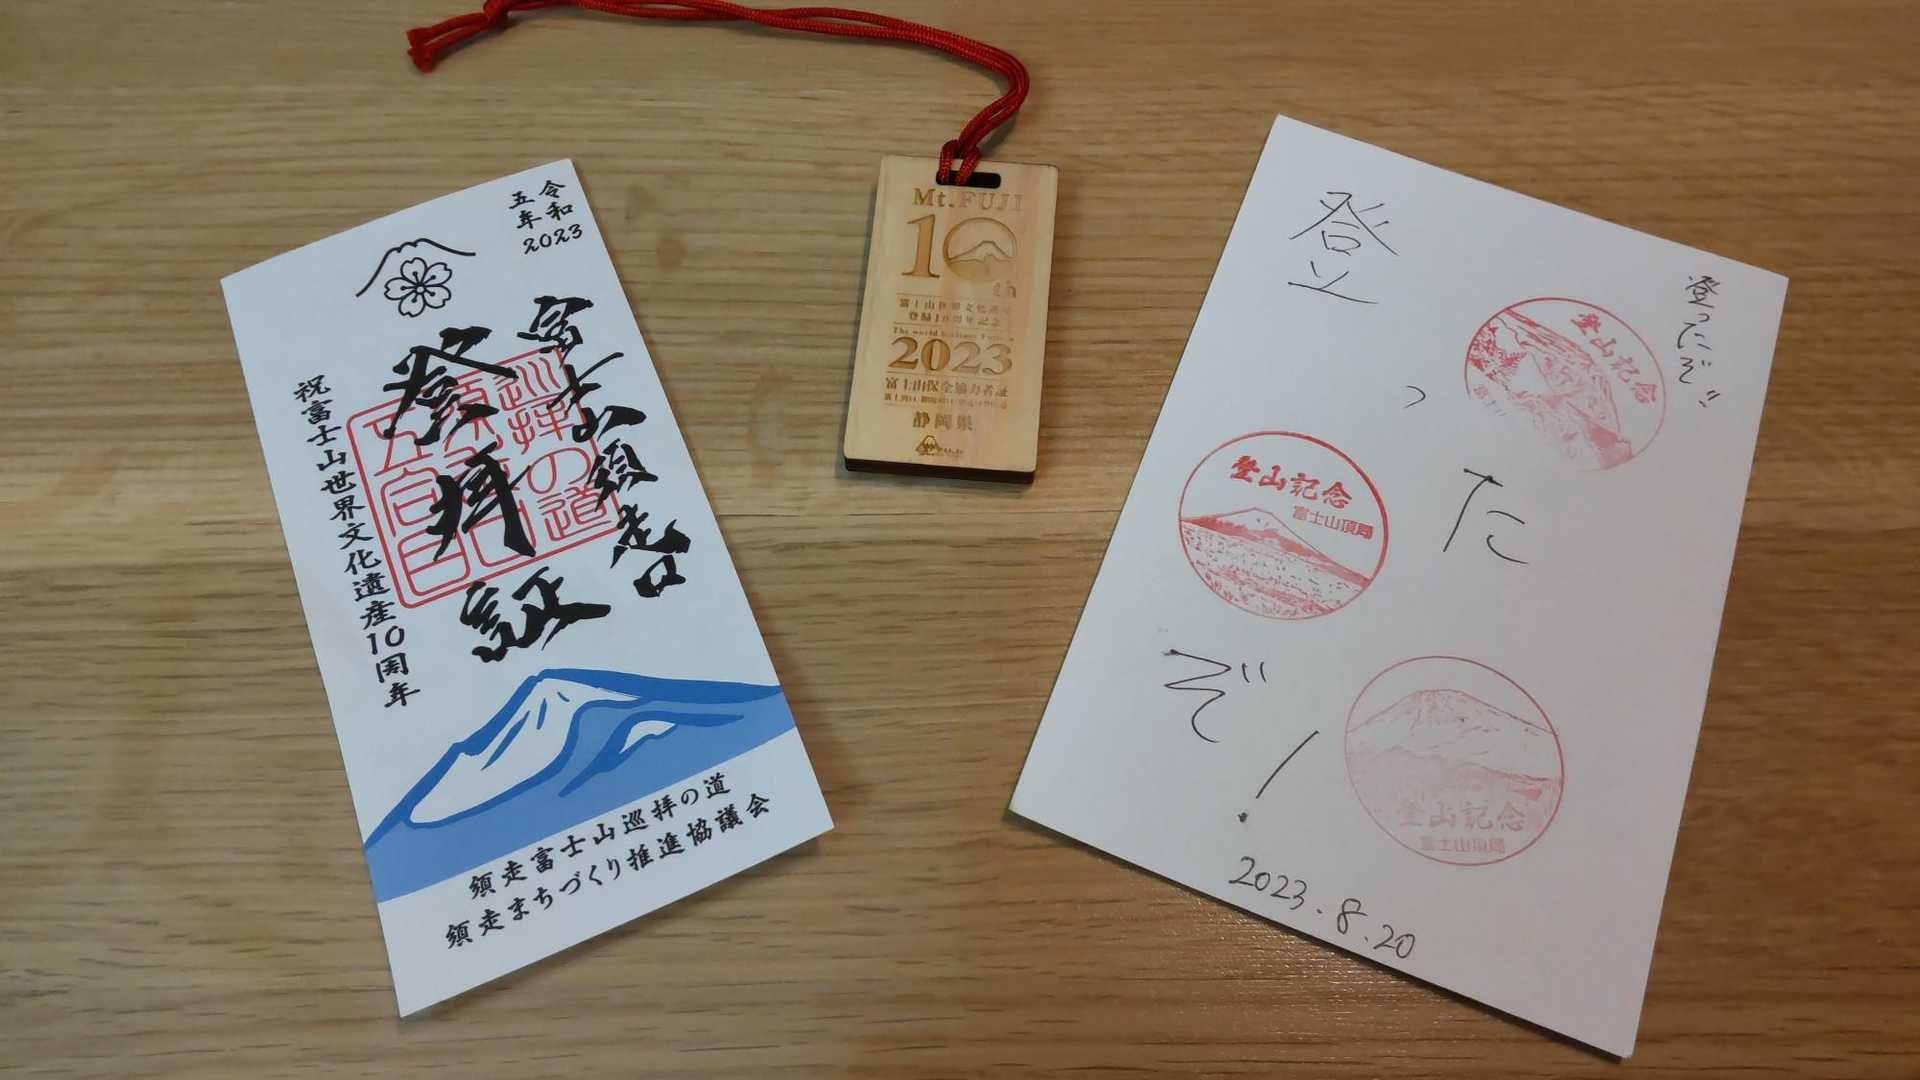 令和
五年
2023
富士山須走口
登拝証
巡拝の道
祝富士山世界文化遺産10周年
須走富士山巡拝の道
須走まちづくり推進協議会
Mt.FUJI
10th
富士山世界文化遺産
登録10周年記念
2023
富士山保全協力者証
静岡県
登ったぞ!!
登山記念
登ったぞ!
登山記念
富士山頂局
登山記念
富士山頂局
2023.8.20